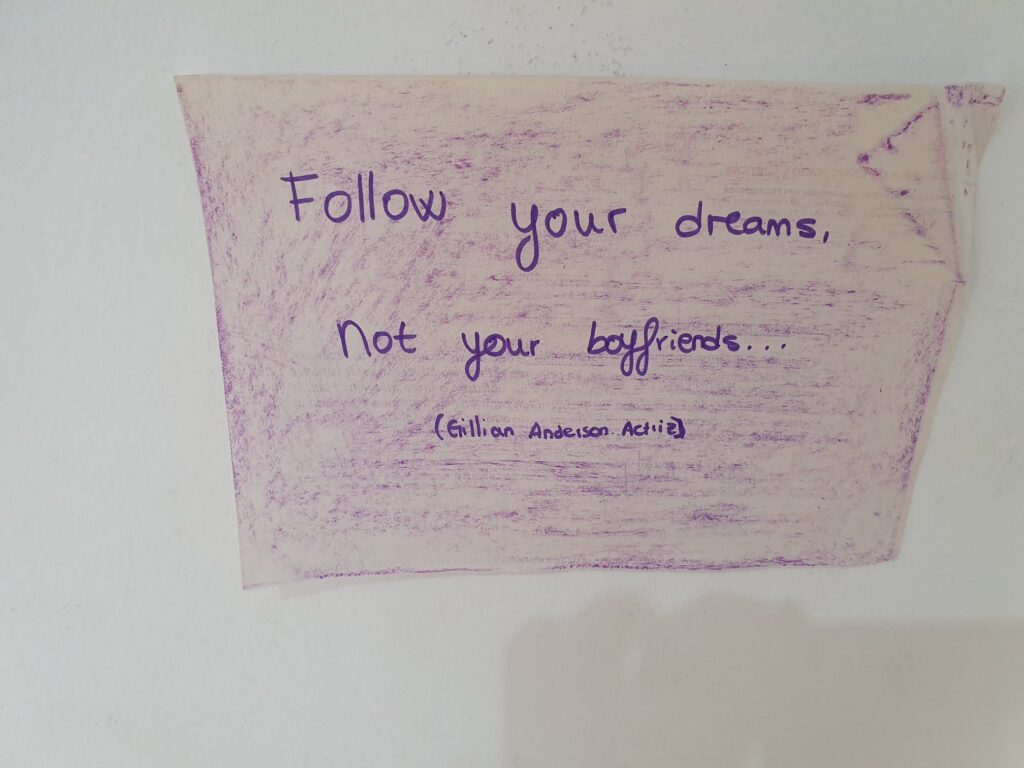 Follow your dreams,
not your boyfriends...
(Gillian Anderson Actriz)